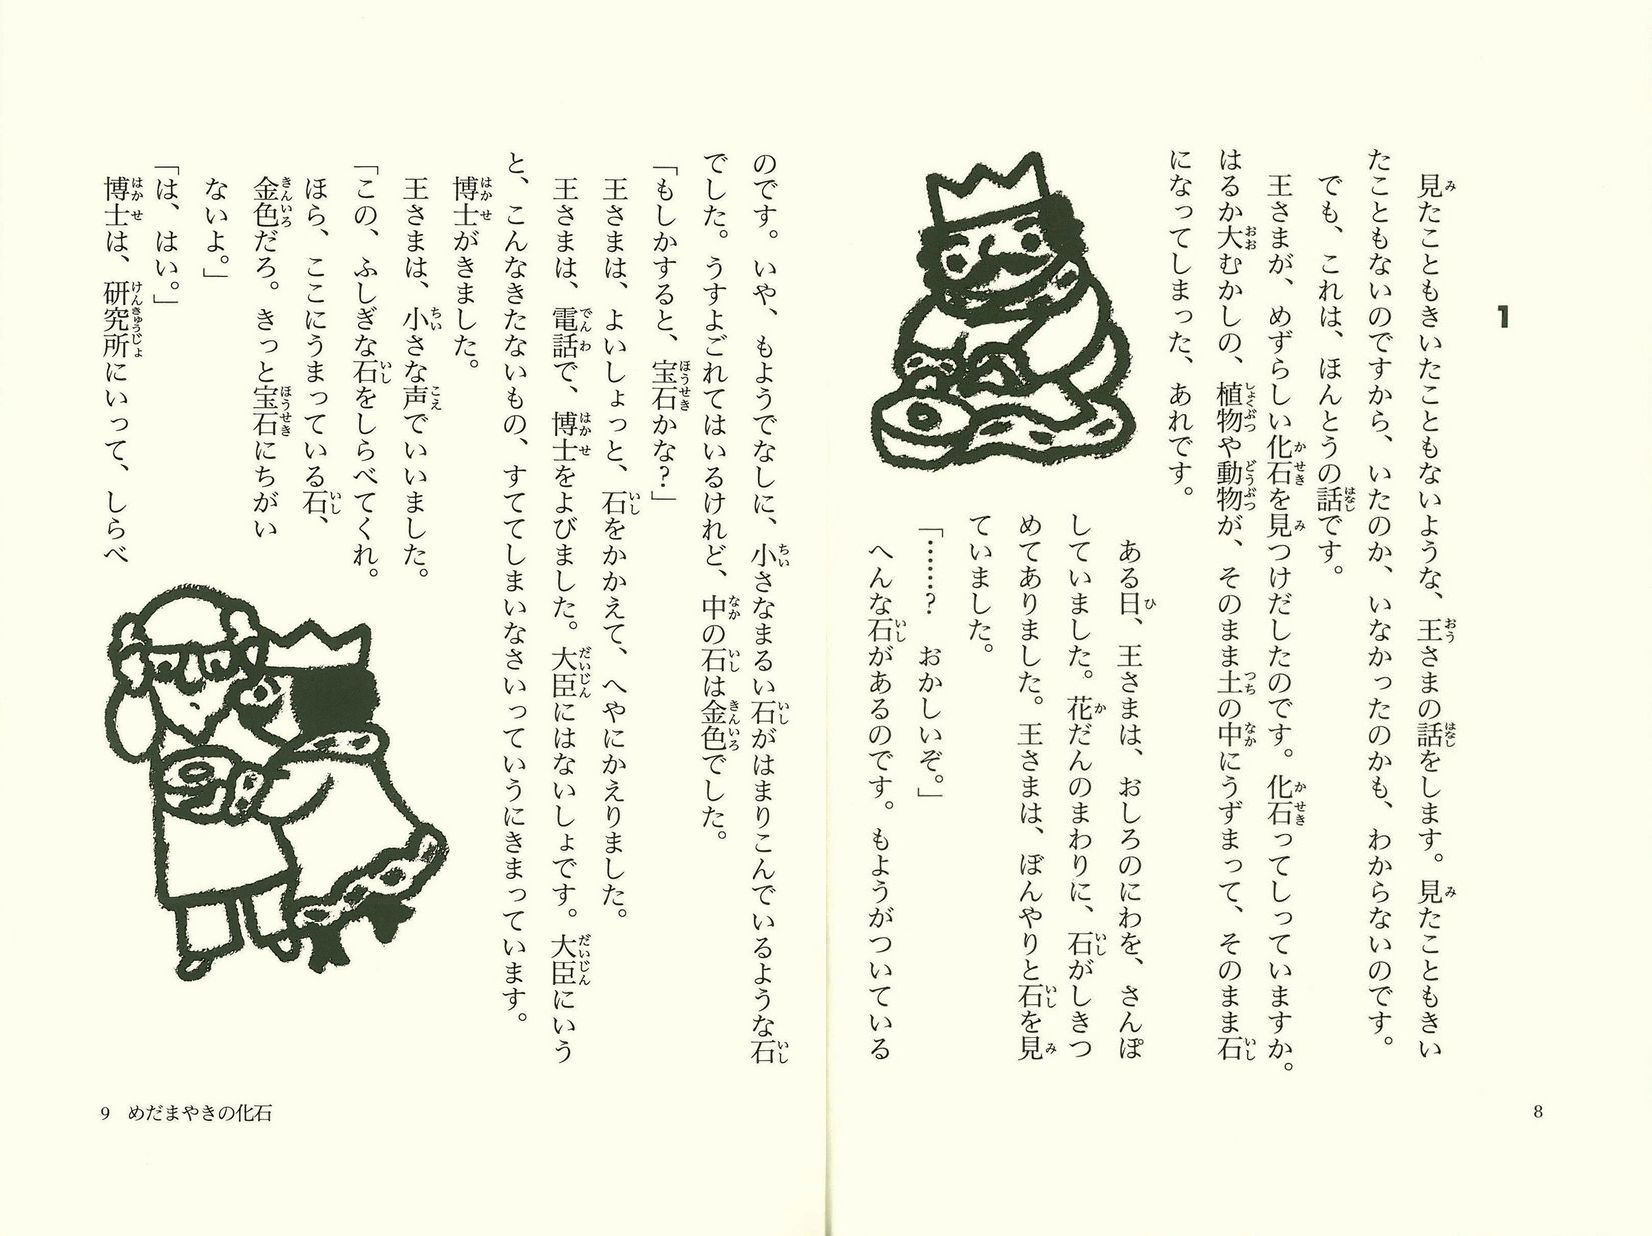 1
見たこともきいたこともないような、王さまの話をします。見たこともきい
たこともないのですから、いたのか、いなかったのかも、わからないのです。
でも、これは、ほんとうの話です。
王さまが、めずらしい化石を見つけだしたのです。化石ってしっていますか。
はるか大むかしの、植物や動物が、そのまま土の中にうずまって、そのまま石
になってしまった、あれです。
ある日、王さまは、おしろのにわを、さんぽ
していました。花だんのまわりに、石がしきつ
めてありました。王さまは、ぼんやりと石を見
ていました。
「……？　おかしいぞ。」
へんな石があるのです。もようがついている
8
のです。いや、もようでなしに、小さなまるい石がはまりこんでいるような石
でした。うすよごれてはいるけれど、中の石は金色でした。
「もしかすると、宝石かな？」
王さまは、よいしょっと、石をかかえて、へやにかえりました。
王さまは、電話で、博士をよびました。大臣にはないしょです。大臣にいう
と、こんなきたないもの、すててしまいなさいっていうにきまっています。
博士がきました。
王さまは、小さな声でいいました。
「この、ふしぎな石をしらべてくれ。
ほら、ここにうまっている石、
金色だろ。きっと宝石にちがい
ないよ。」
「は、はい。」
博士は、研究所にいって、しらべ
9 めだまやきの化石